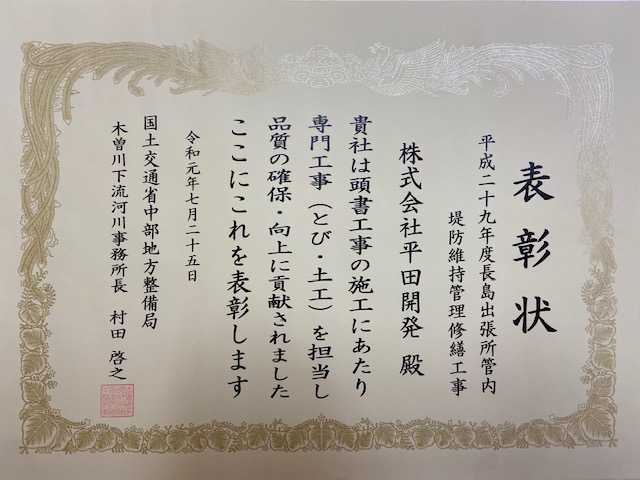 表彰状
平成二十九年度長島出張所管内
堤防維持管理修繕工事
株式会社平田開発 殿
貴社は頭書工事の施工にあたり
専門工事（とび・土工）を担当し
品質の確保・向上に貢献されました
ここにこれを表彰します
令和元年七月二十五日
国土交通省中部地方整備局
木曽川下流河川事務所長 村田 啓之